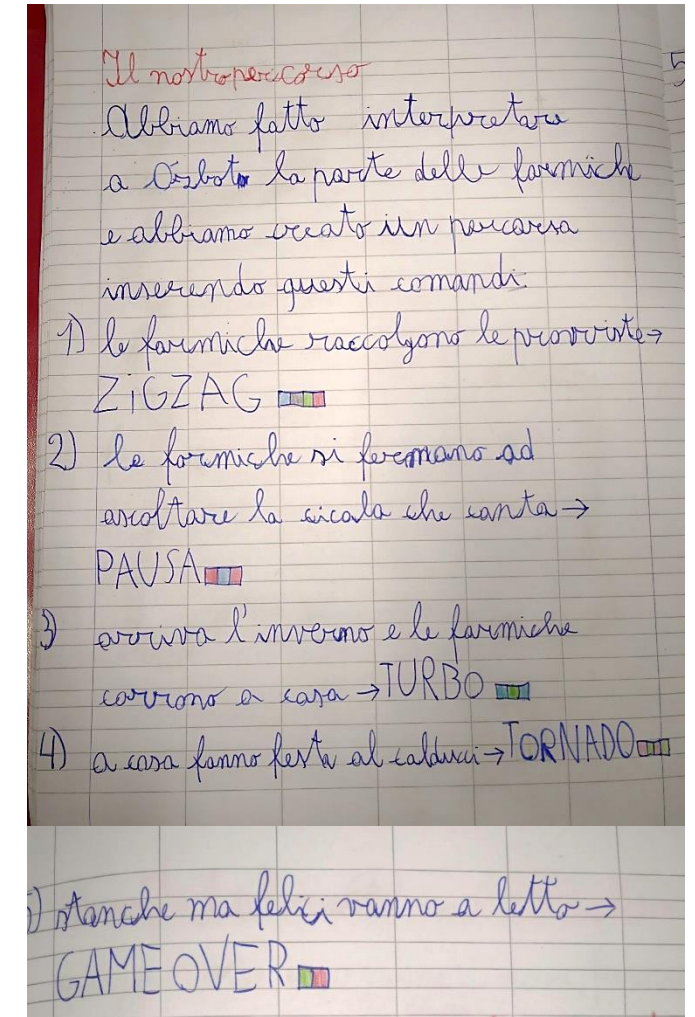 Il nostro percorso
Abbiamo fatto interpretare
a Ozbot la parte delle formiche
e abbiamo creato un percorso
inserendo questi comandi:
1) le formiche raccolgono le provviste→
ZiGZAG
2) le formiche si fermano ad
ascoltare la cicala che canta→
PAUSA
3) arriva l'inverno e le formiche
corrono a casa→TURBO
4) a casa fanno festa al calducci→TORNADO
5) stanche ma felici vanno a letto→
GAME OVER